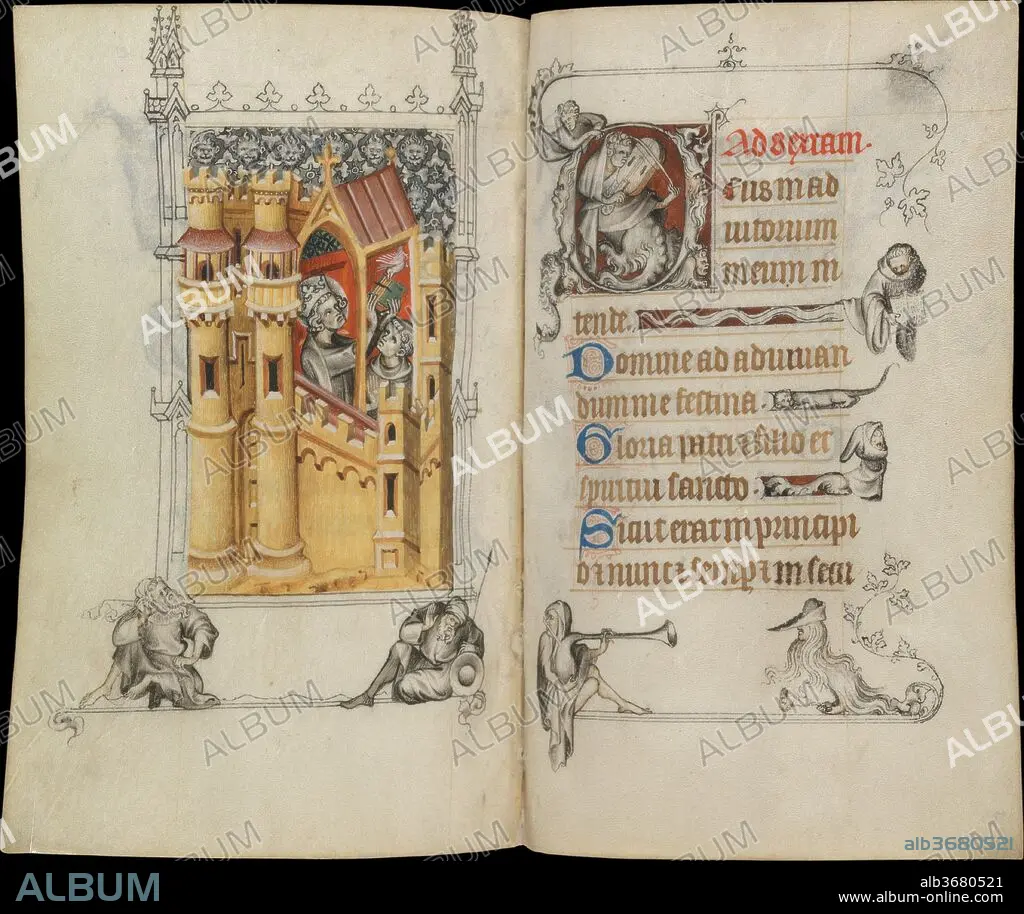 Ad sextam.
Eus in ad
iutorium
meum in
tende.
Domine ad adiuuan
dum me festina.
Gloria patri & filio et
spiritui sancto.
Sicut erat in principi
o & nunc & semper & in secu
ALBUM
alb3680521
ALBUM
alb3680521
www.album-online.com